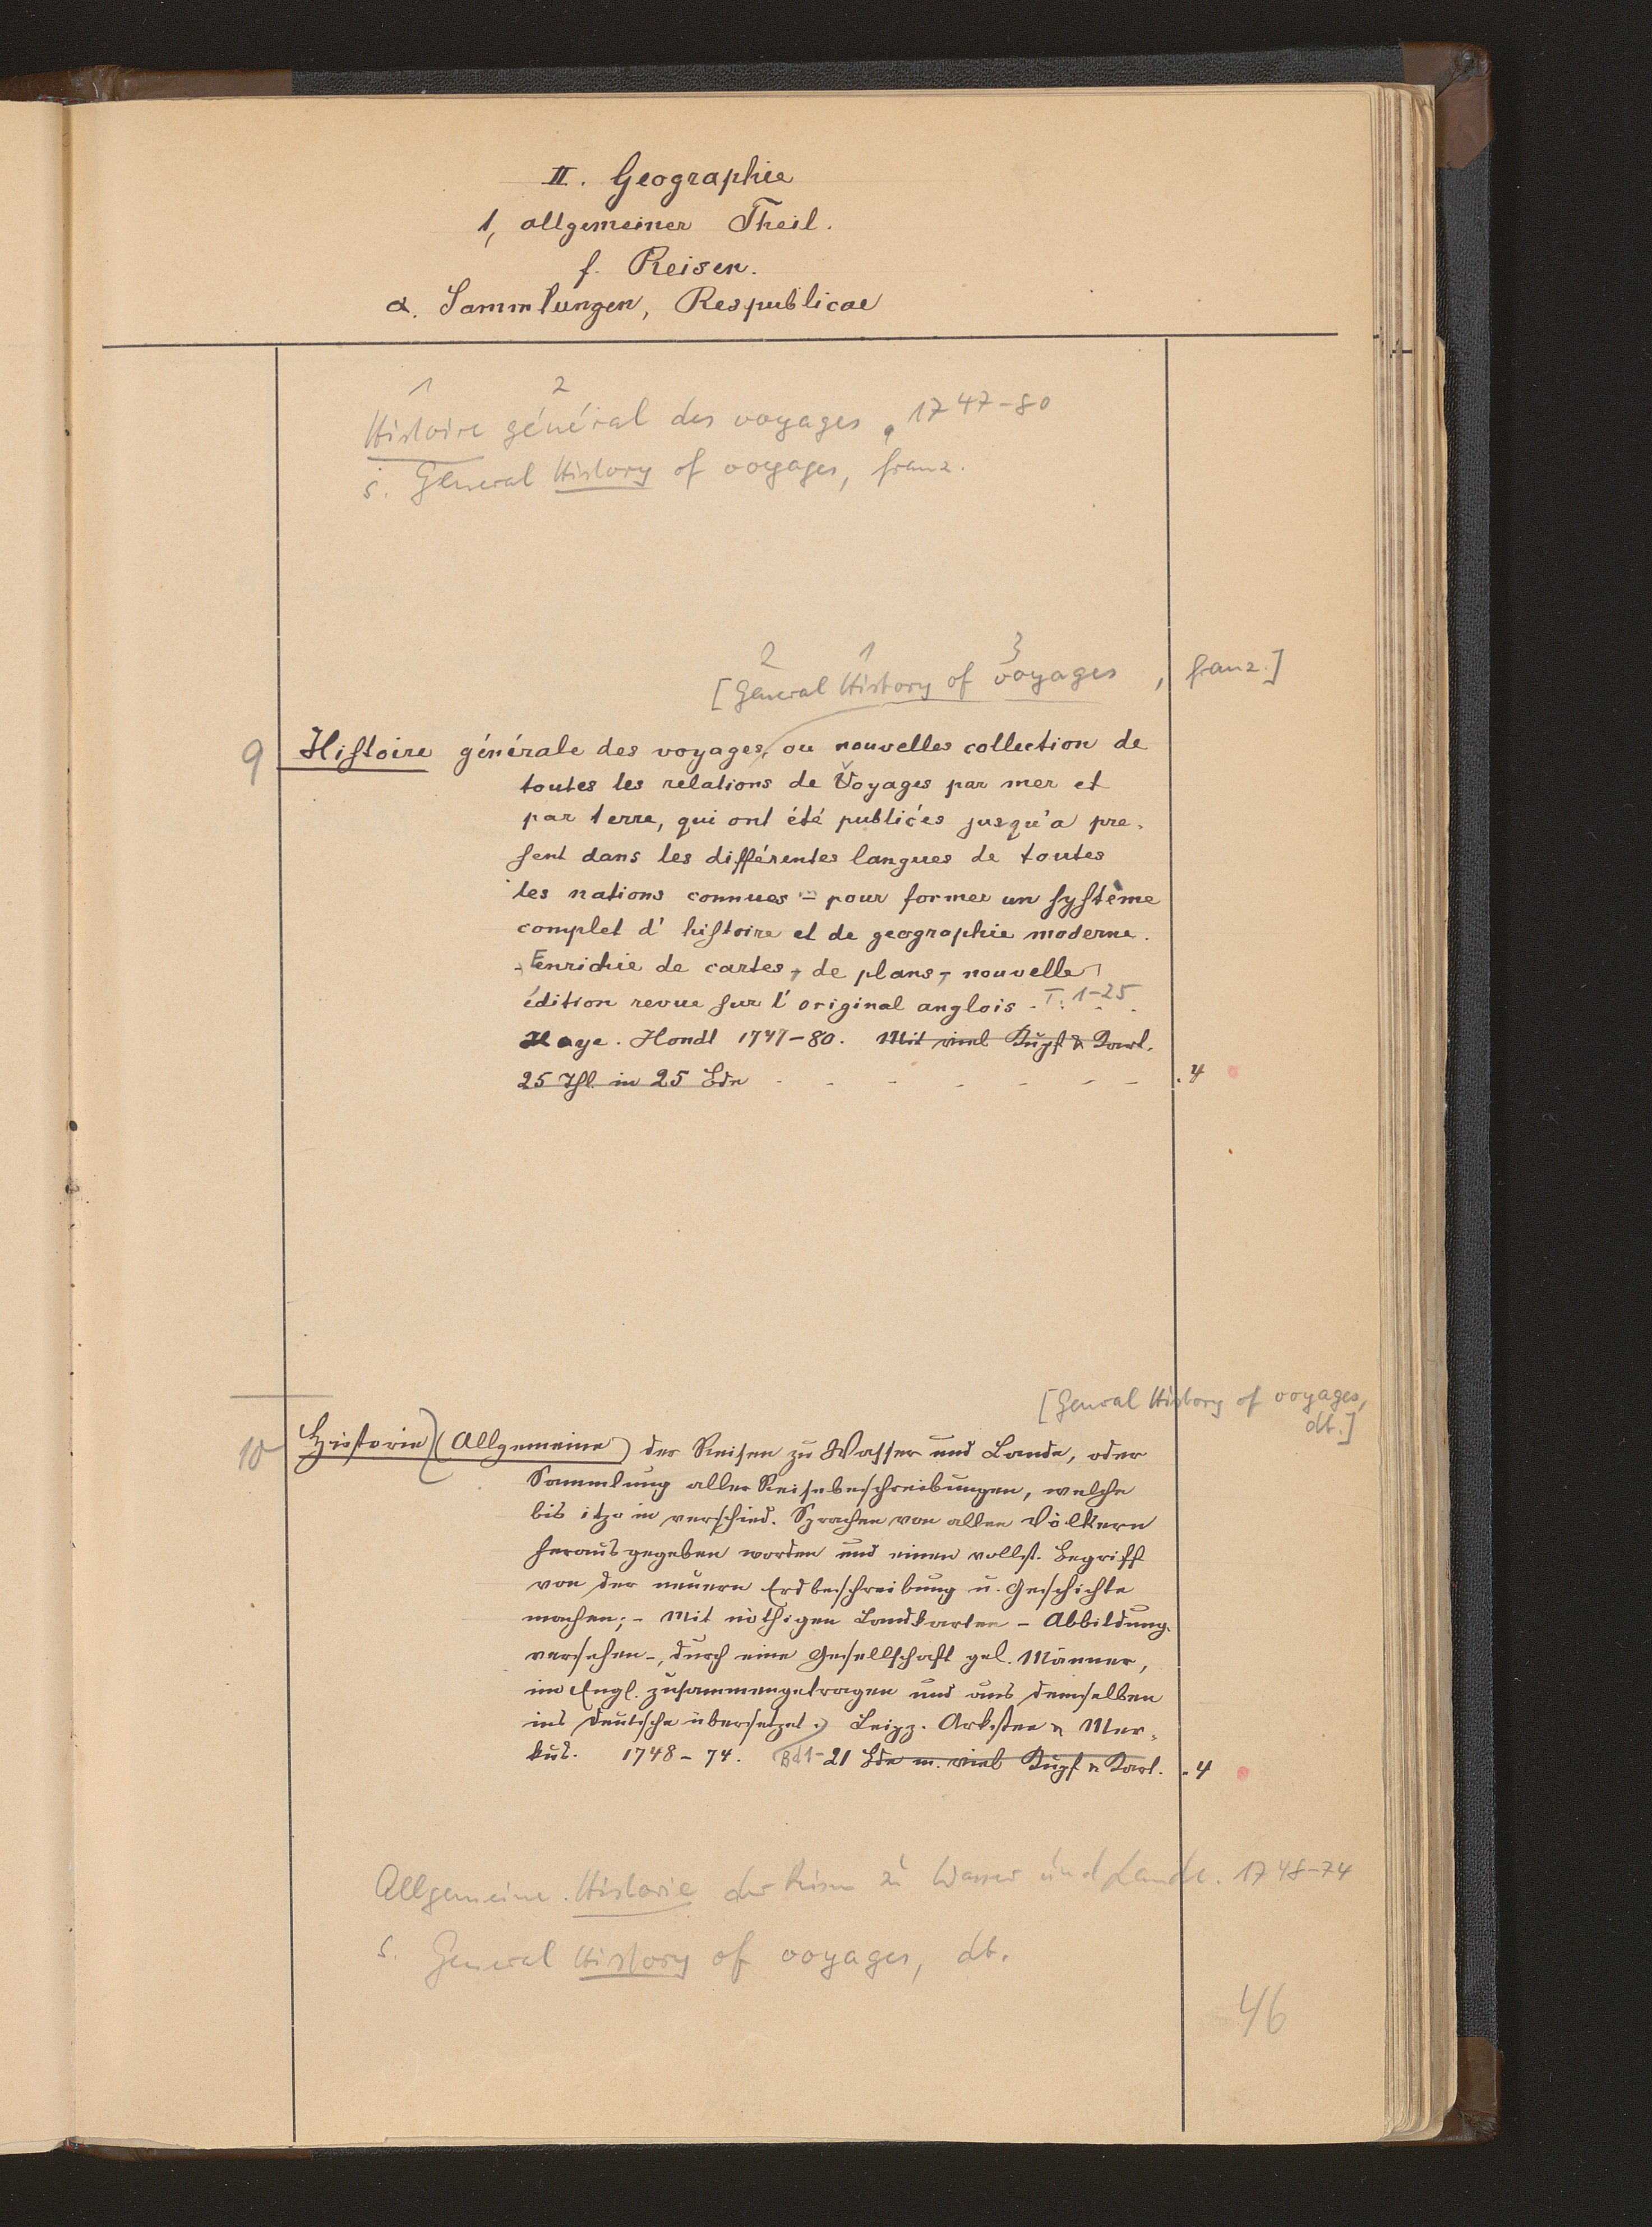 II. Geographie
1, allgemeiner Theil.
f. Reisen.
α. Sammlungen, Respublicae
1 2
Histoire général des voyages. 1747-80
s. General History of voyages, franz.
2 1 3
[General History of voyages, franz.]
9 Histoire générale des voyages, ou nouvelles collection de
toutes les relations de Voyages par mer et
par terre, qui ont été publiées jusqu'a pre-
sent dans les différentes langues de toutes
les nations connues - pour former un système
complet d' histoire et de geographie moderne.
- Enrichie de cartes, de plans, - nouvelle
édition revue sur l' original anglois - T. 1-25.
Haye. Hondt 1747-80. Mit viel Kupf & Kart.
25 Thl. in 25 Bdn - - - - - - . 4
[General History of voyages,
dt.]
10 Historie (Allgemeine) der Reisen zu Wasser und Lande, oder
Sammlung aller Reisebeschreibungen, welche
bis itzo in verschied. Sprachen von allen Völkern
herausgegeben worden und einen vollst. Begriff
von der neuern Erdbeschreibung u. Geschichte
machen; - Mit nöthigen Landkarten - Abbildung.
versehen -, durch eine Gesellschaft gel. Männer,
im Engl. zusammengetragen und aus demselben
ins Deutsche übersetzet. Leipz. Arkstee & Mer-
kus. 1748-74. Bd 1-21 Bde m. viel Kupf & Kart. . 4
Allgemeine Historie der Reisen zu Wasser und Lande. 1748-74
s. General History of voyages, dt.
46